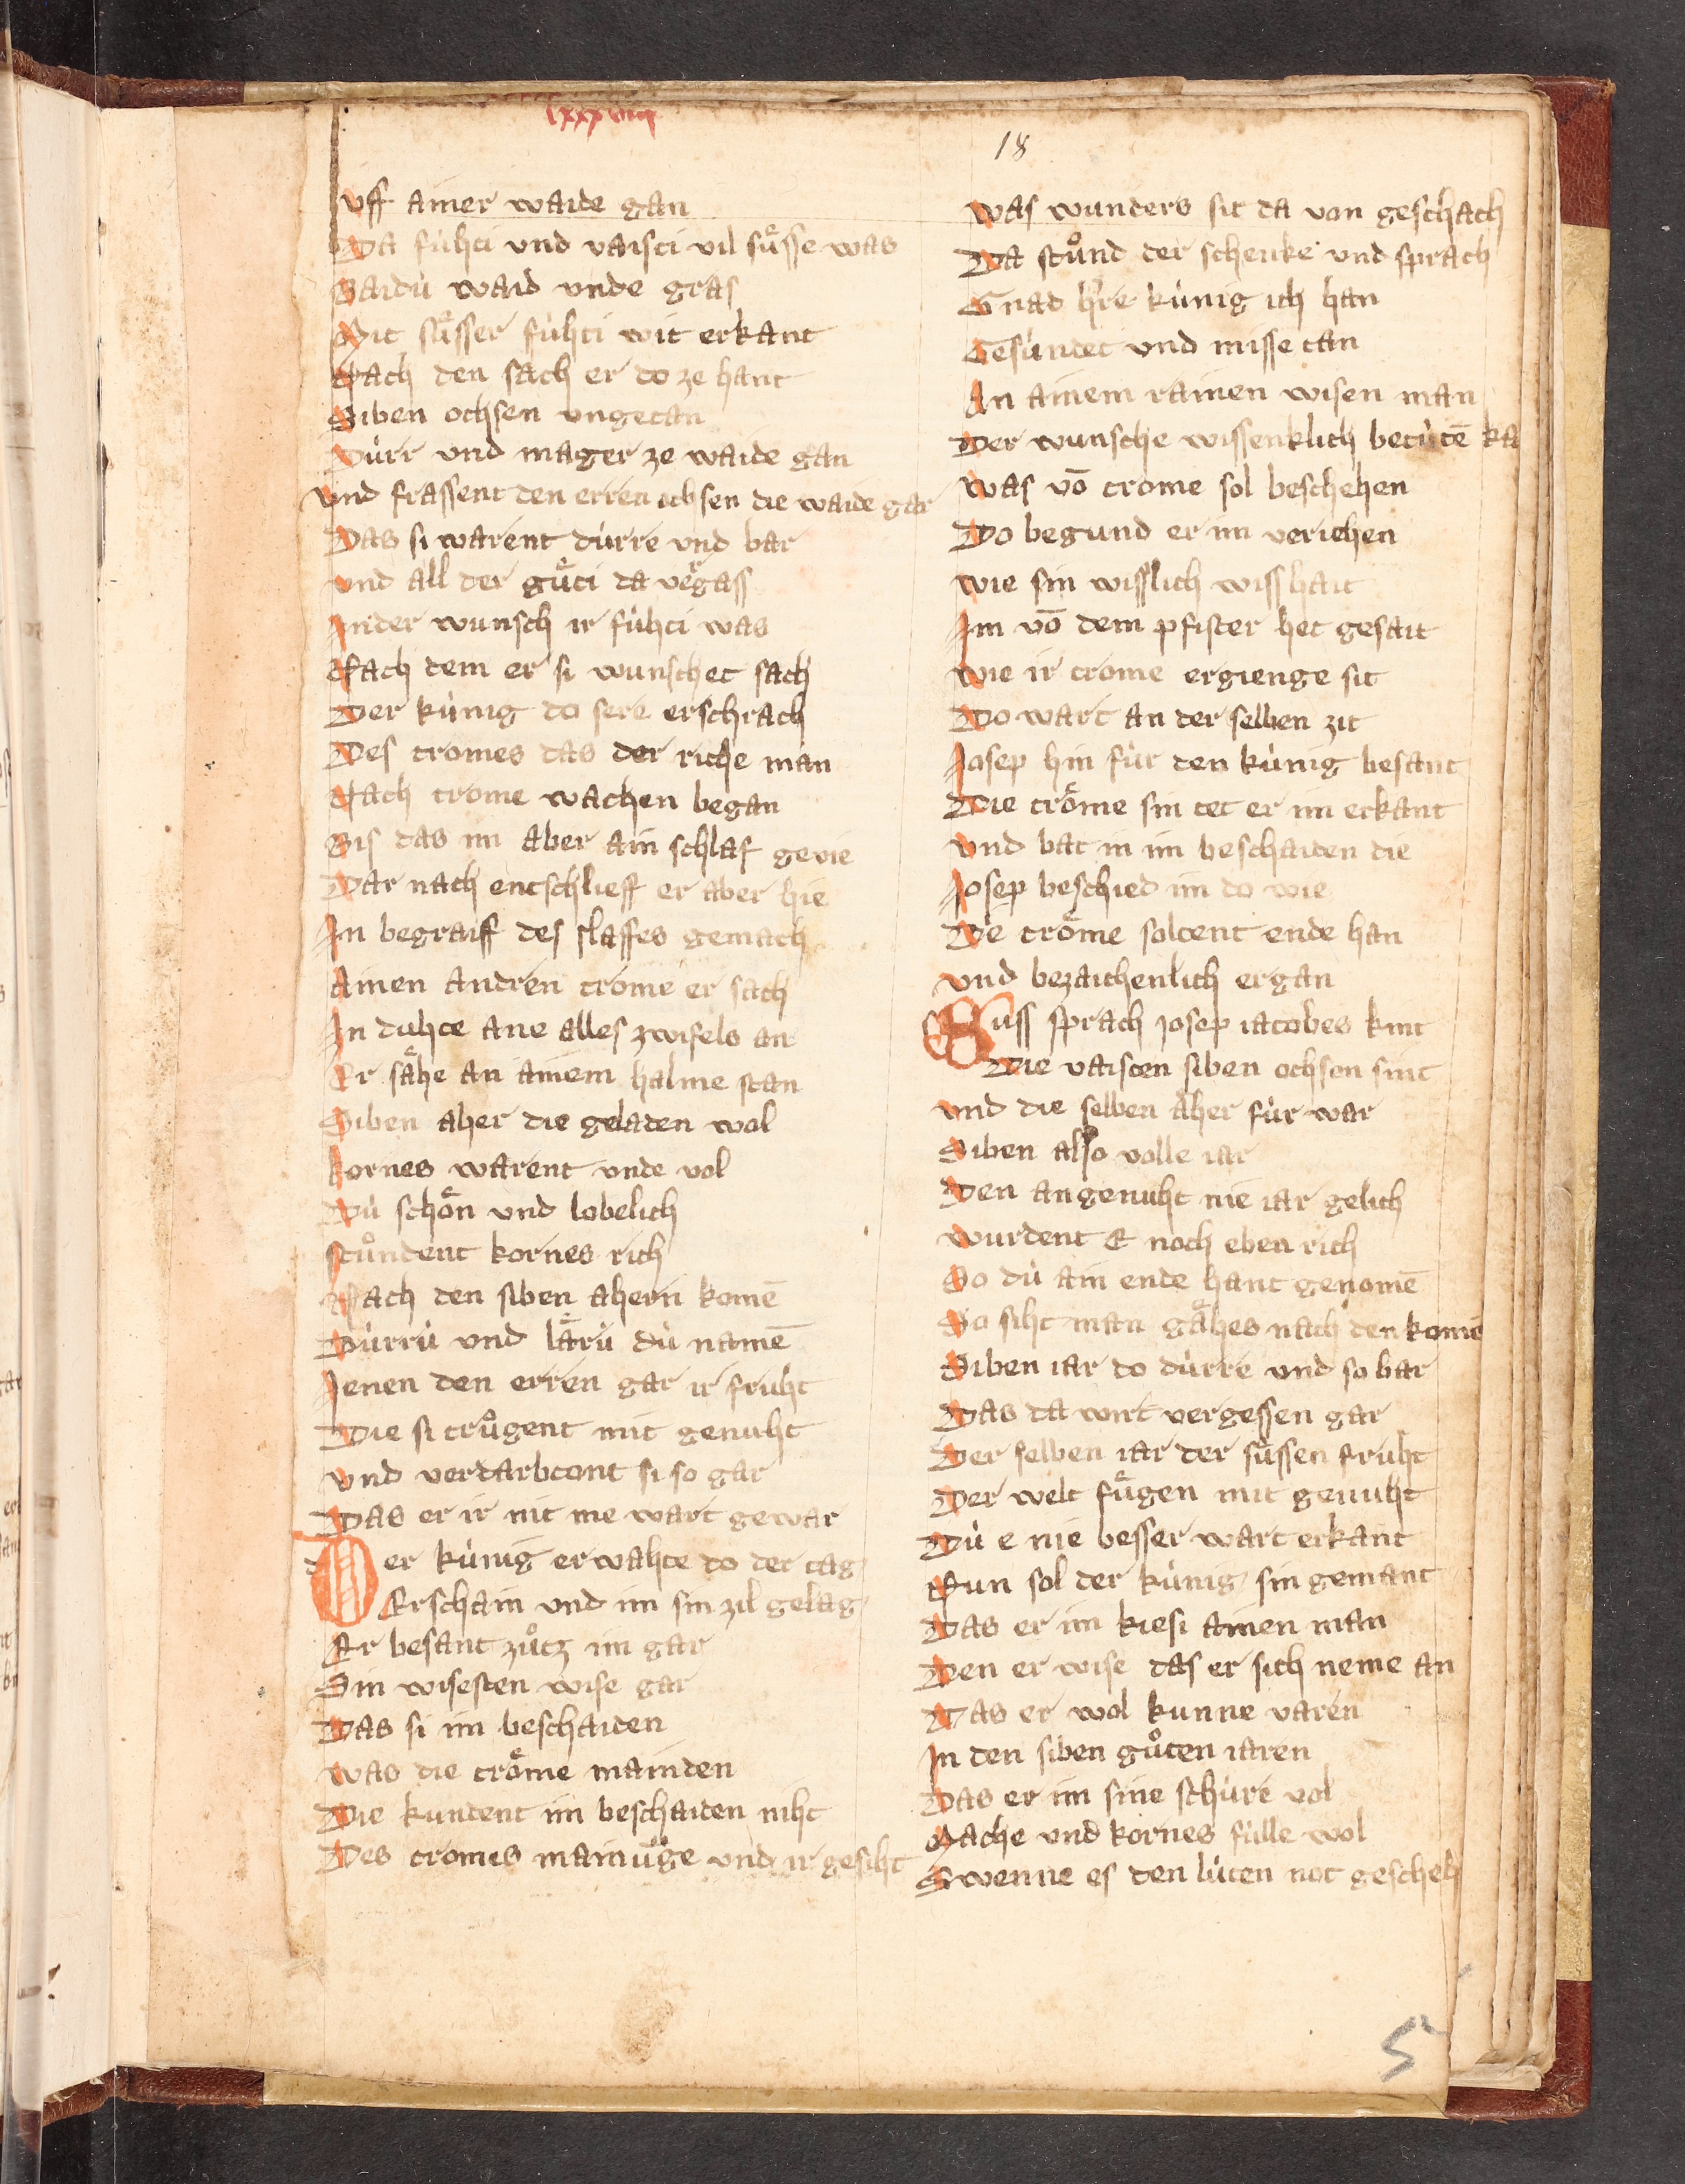 lxxxviiij
18
Vff ainer waide gan
Da fúhti vnd vaisti vil sůsse was
Baidú waid vnde gras
Mit sůsser fúhti wit erkant
Nach den sach er do ze hant
Siben ochsen vngetan
Dúrr vnd mager ze waide gan
Vnd frassent den erren ochsen die waide gar
Das si warent dúrre vnd bar
Vnd all der gůti da v̾gass
In der wunsch ir fúhti was
Nach dem er si wunschet sach
Der kúnig do sere erschrach
Des tromes das der riche man
Nach trome wachen began
Bis das im aber ain schlaf gevie
Dar nach entschlieff er aber hie
In begraiff des slaffes gemach
Ainen andren trome er sach
In duhte ane alles zwifels an
Er sa̍he an ainem halme stan
Siben aher die geladen wol
kornes warent vnde vol
Dú scho̍n vnd lobelich
Stůndent kornes rich
Nach den siben ahern komē
Dúrrú vnd la̍rú dú namē
Jenen den erren gar ir fruht
Die si trůgent mit genuht
Vnd verdarbtont si so gar
Das er ir nit me wart gewar
Der kúnig erwahte do der tag
Erschain vnd im sin zil gelag
Er besant zůtz im gar
Sin wisesten wise gar
Das si im beschaiden
Was die tro̍me mainden
Die kundent im beschaiden niht
Des tromes mainu̍ge vnd ir gesiht
Was wunders sit da von geschach
Da stůnd der schenke vnd sprach
Gnad h̾re kúnig ich han
Gesúndet vnd misse tan
An ainem rainen wisen man
Der wunsche wissenklich betútē ka
Was vō trome sol beschehen
Do begund er im veriehen
Wie sin wisslich wisshait
Im vō dem pfister het gesait
Wie ir trome ergienge sit
Do wart an der selben zit
Josep hin fúr den kúnig besant
Die tro̍me sin tet er im erkant
Vnd bat in im beschaiden die
Josep beschied im do wie
De tro̍me soltent ende han
Vnd bezaichenlich ergan
Suss sprach Josep iacobes kint
Die vaisten siben ochsen sint
Vnd die selben aher fúr war
Siben also volle iar
Den an genuht nie iar gelich
Wurdent E noch eben rich
So dú ain ende hant genomē
So siht man ga̍hes nach den komē
Siben iar do dúrre vnd so bar
Das da wirt vergessen gar
Der selben iar der sússen fruht
Der welt fůgen mit genuht
Dú e nie besser wart erkant
Nun sol der kúnig sin gemant
Das er im kiesi ainen man
Den er wise das er sich neme an
Das er wol kunne varen
In den siben gůten iaren
Das er im sine schúre vol
Mache vnd kornes fúlle wol
Swenne es den lúten not gescheh
5